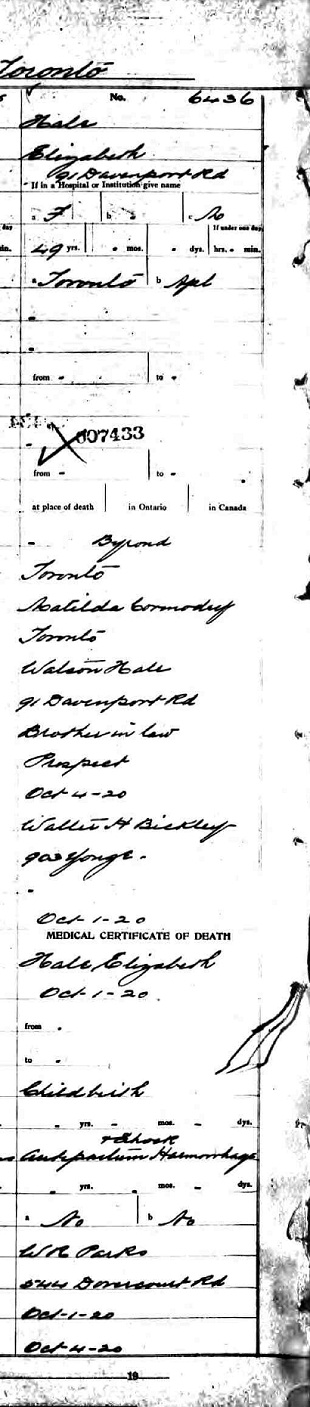 Toronto
No. 6436
Hale
Elizabeth
91 Davenport Rd
If in a Hospital or Institution give name
a F b - c No
day If under one day
49 yrs. - mos. - dys. hrs. - min.
a Toronto b Apl
-
-
from - to -
007433
from - to -
at place of death in Ontario in Canada
- Byrond
Toronto
Matilda Cormodey
Toronto
Watson Hale
91 Davenport Rd
Brother in law
Prospect
Oct 4-20
Walter H Bickley
Yonge.
-
Oct 1-20
MEDICAL CERTIFICATE OF DEATH
Hale, Elizabeth
Oct-1-20.
from -
to -
Childbirth
- yrs. - mos. - dys.
+ Shock
Antepartum Haemorrhage
- yrs. - mos. - dys.
a No b No
W R Parks
544 Dovercourt Rd
Oct-1-20
Oct-4-20
19